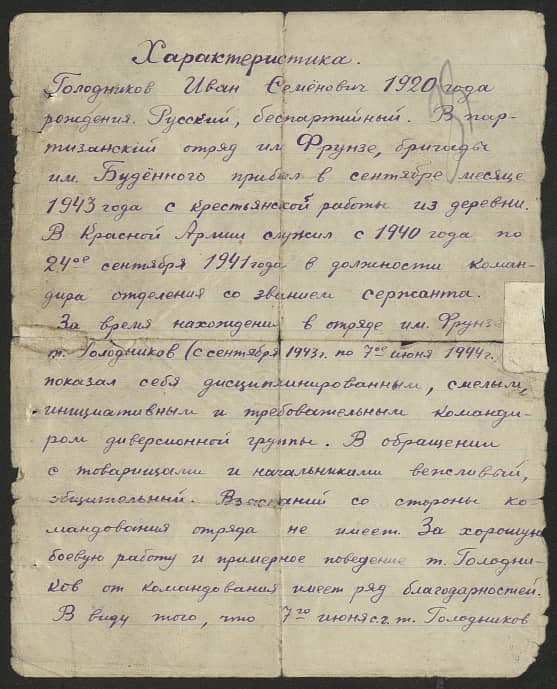 Характеристика.
Голодников Иван Семёнович 1920 года
рождения. Русский, беспартийный. В пар-
тизанский отряд им Фрунзе, бригады
им. Будённого прибыл в сентябре месяце
1943 года с крестьянской работы из деревни.
В Красной Армии служил с 1940 года по
24ое сентября 1941 года в должности коман-
дира отделения со званием сержанта.
За время нахождения в отряде им. Фрунзе
т. Голодников (с сентября 1943 г. по 7ое июня 1944 г.
показал себя дисциплинированным, смелым,
инициативным и требовательным команди-
ром диверсионной группы. В обращении
с товарищами и начальниками вежливый,
общительный. Взысканий со стороны ко-
мандования отряда не имеет. За хорошую
боевую работу и примерное поведение т. Голодни-
ков от командования имеет ряд благодарностей.
В виду того, что 7го июня с.г. т. Голодников